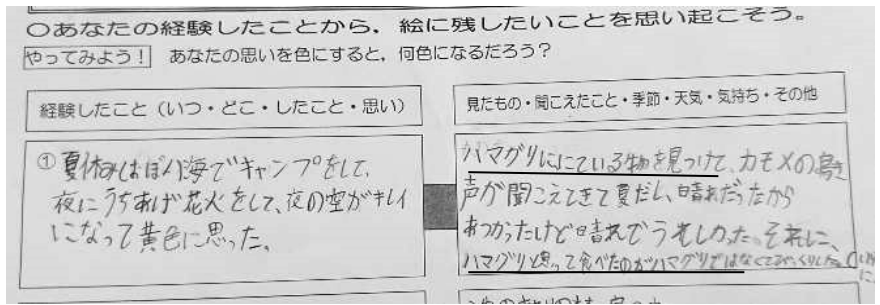 ○あなたの経験したことから，絵に残したいことを思い起こそう。
やってみよう！ あなたの思いを色にすると，何色になるだろう？
経験したこと（いつ・どこ・したこと・思い）
見たもの・聞こえたこと・季節・天気・気持ち・その他
①夏休みは海でキャンプをして、
夜にうちあげ花火をして、夜の空がキレイ
になって黄色に思った。
ハマグリににている物を見つけて、カモメの鳴き
声が聞こえてきて夏だし、晴れだったから
あつかったけど晴れでうれしかった。それに、
ハマグリと思って食べたのがハマグリではなくてびっくりした。